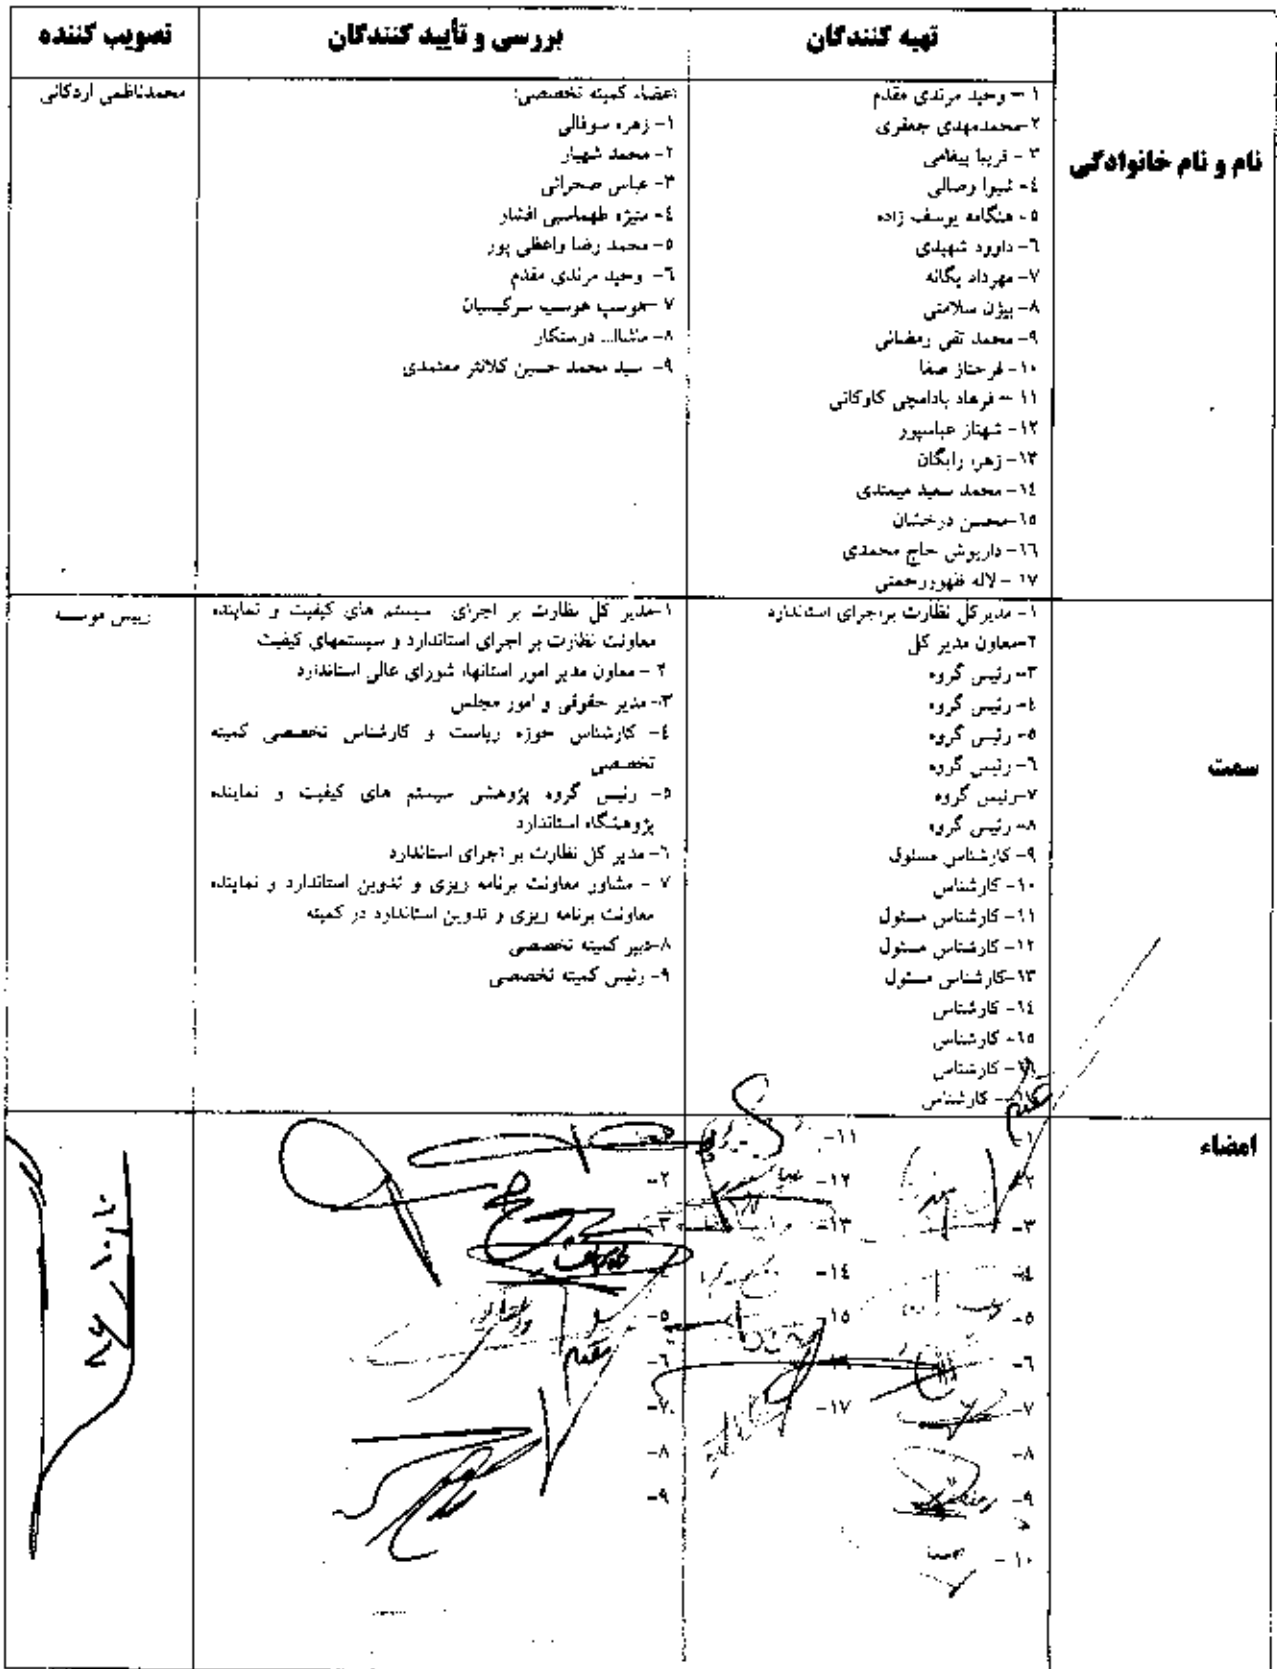 تهیه کنندگان
بررسی و تأیید کنندگان
تصویب کننده
نام و نام خانوادگی
۱ – وحید مرندی مقدم
۲-محمدمهدی جعفری
۳ - فریبا پیغامی
٤- شیوا وصالی
٥- هنگامه یوسف زاده
٦- داوود شهیدی
۷- مهرداد یگانه
۸- بیژن سلامتی
۹- محمد تقی رمضانی
۱۰- فرحناز صفا
۱۱ – فرهاد بادامچی کاوکانی
۱۲- شهناز عباسپور
۱۳- زهره رایگان
۱٤- محمد سعید میمندی
۱٥-محسن درخشان
۱٦- داریوش حاج محمدی
۱۷ - لاله
اعضاء کمیته تخصصی:
۱- زهره سوفالی
۲- محمد شهیار
۳- عباس صحرائی
٤- منیژه طهماسبی افشار
٥- محمد رضا واعظی پور
٦- وحید مرندی مقدم
۷ -هوسپ هوسپ سرکیسیان
۸- ماشاا... درستکار
۹- سید محمد حسین کلانتر معتمدی
محمدناظمی اردکانی
سمت
۱- مدیرکل نظارت براجرای استاندارد
۲-معاون مدیر کل
۳- رئیس گروه
٤- رئیس گروه
٥- رئیس گروه
٦- رئیس گروه
۷-رئیس گروه
۸- رئیس گروه
۹- کارشناس مسئول
۱۰- کارشناس
۱۱- کارشناس مسئول
۱۲- کارشناس مسئول
۱۳-کارشناس مسئول
۱٤- کارشناس
۱٥- کارشناس
۱٦- کارشناس
۱۷- کارشناس
۱-مدیر کل نظارت بر اجرای سیستم های کیفیت و نماینده
معاونت نظارت بر اجرای استاندارد و سیستمهای کیفیت
۲ - معاون مدیر امور استانها، شورای عالی استاندارد
۳- مدیر حقوقی و امور مجلس
٤- کارشناس حوزه ریاست و کارشناس تخصصی کمیته
تخصصی
٥- رئیس گروه پژوهشی سیستم های کیفیت و نماینده
پژوهشگاه استاندارد
٦- مدیر کل نظارت بر اجرای استاندارد
۷ - مشاور معاونت برنامه ریزی و تدوین استاندارد و نماینده
معاونت برنامه ریزی و تدوین استاندارد در کمیته
۸-دبیر کمیته تخصصی
۹- رئیس کمیته تخصصی
رییس موسسه
امضاء
۱-
۲-
۳-
٤-
٥-
٦-
۷-
۸-
۹-
۱۰ -
۱۱-
۱۲-
۱۳-
۱٤-
۱٥-
۱٦-
۱۷-
۲-
۳-
٥-
٦-
۷-
۸-
۹-